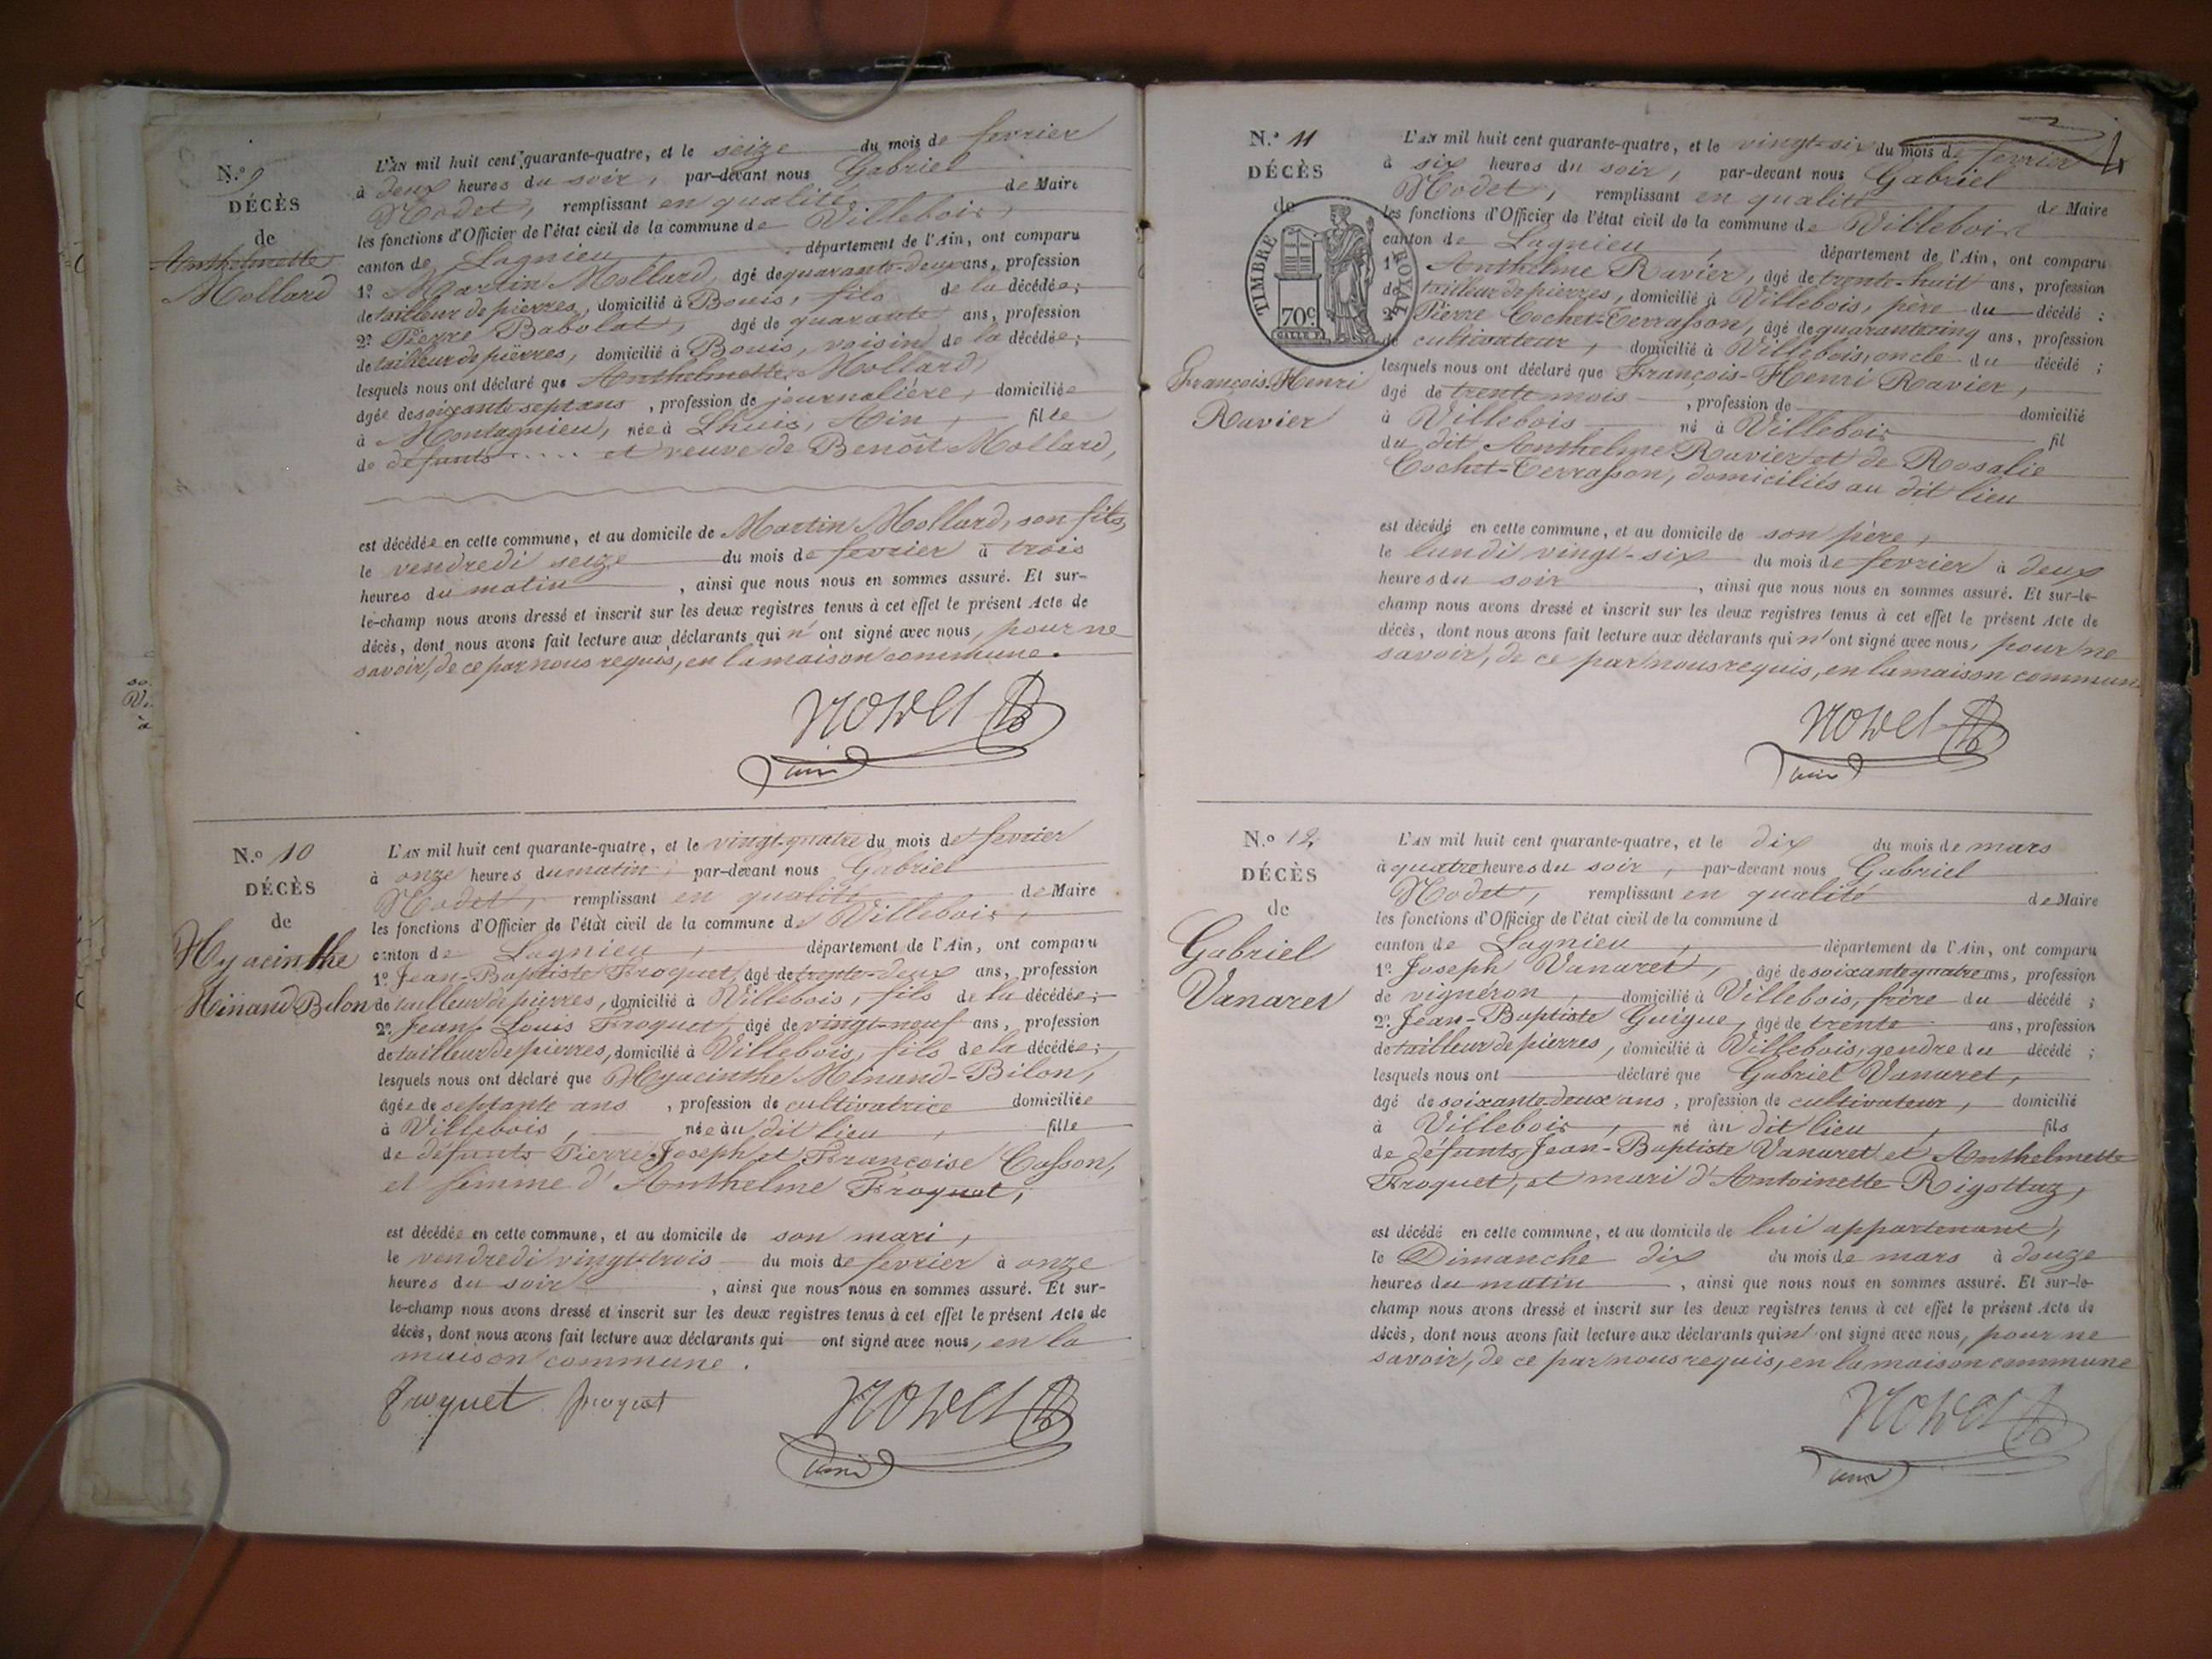 N.º 9
DÉCÈS
de
Anthelmette
Mollard
L'AN mil huit cent quarante-quatre, et le seize du mois de fevrier
à deux heures du soir, par-devant nous Gabriel
Nodet, remplissant en qualité de Maire
les fonctions d'Officier de l'état civil de la commune de Villebois,
canton de Lagnieu, département de l'Ain, ont comparu
1º Martin Mollard, âgé de quarante-deux ans, profession
de tailleur de pierres, domicilié à Bouis, fils de la décédée;
2º Pierre Babolat, âgé de quarante ans, profession
de tailleur de pierres, domicilié à Bouis, voisin de la décédée;
lesquels nous ont déclaré que Anthelmette Mollard,
âgée de soixante sept ans, profession de journalière, domiciliée
à Montagnieu, née à Lhuis, Ain, fille
de défunts ..... et veuve de Benoît Mollard,
est décédée en cette commune, et au domicile de Martin Mollard, son fils,
le vendredi seize du mois de fevrier à trois
heures du matin, ainsi que nous nous en sommes assuré. Et sur-
le-champ nous avons dressé et inscrit sur les deux registres tenus à cet effet le présent Acte de
décès, dont nous avons fait lecture aux déclarants qui n'ont signé avec nous, pour ne
savoir, de ce par nous requis, en la maison commune.
Nodet
N.º 10
DÉCÈS
de
Hyacinthe
Minand Bilon
L'AN mil huit cent quarante-quatre, et le vingt-quatre du mois de fevrier
à onze heures du matin, par-devant nous Gabriel
Nodet, remplissant en qualité de Maire
les fonctions d'Officier de l'état civil de la commune de Villebois,
canton de Lagnieu, département de l'Ain, ont comparu
1º Jean-Baptiste Froquet, âgé de trente-deux ans, profession
de tailleur de pierres, domicilié à Villebois, fils de la décédée;
2º Jean Louis Froquet, âgé de vingt-neuf ans, profession
de tailleur de pierres, domicilié à Villebois, fils de la décédée;
lesquels nous ont déclaré que Hyacinthe Minand-Bilon,
âgée de septante ans, profession de cultivatrice domiciliée
à Villebois, née au dit lieu, fille
de défunts Pierre Joseph et Françoise Casson,
et femme d'Anthelme Froquet,
est décédée en cette commune, et au domicile de son mari,
le vendredi vingt-trois du mois de fevrier à onze
heures du soir, ainsi que nous nous en sommes assuré. Et sur-
le-champ nous avons dressé et inscrit sur les deux registres tenus à cet effet le présent Acte de
décès, dont nous avons fait lecture aux déclarants qui ont signé avec nous, en la
maison commune.
froquet froquet Nodet
N.º 11
DÉCÈS
de
TIMBRE ROYAL
70 c.
François-Henri
Ravier
4
L'AN mil huit cent quarante-quatre, et le vingt-six du mois de fevrier
à six heures du soir, par-devant nous Gabriel
Nodet, remplissant en qualité de Maire
les fonctions d'Officier de l'état civil de la commune de Villebois
canton de Lagnieu, département de l'Ain, ont comparu
1º Anthelme Ravier, âgé de trente-huit ans, profession
de tailleur de pierres, domicilié à Villebois, père du décédé;
2º Pierre Cochet-Terrasson, âgé de quarante cinq ans, profession
de cultivateur, domicilié à Villebois, oncle du décédé;
lesquels nous ont déclaré que François-Henri Ravier,
âgé de trente mois, profession de domicilié
à Villebois né à Villebois fil
du dit Anthelme Ravier et de Rosalie
Cochet-Terrasson, domiciliés au dit lieu
est décédé en cette commune, et au domicile de son père,
le lundi vingt-six du mois de fevrier à deux
heures du soir, ainsi que nous nous en sommes assuré. Et sur-le-
champ nous avons dressé et inscrit sur les deux registres tenus à cet effet le présent Acte de
décès, dont nous avons fait lecture aux déclarants qui n'ont signé avec nous, pour ne
savoir, de ce par nous requis, en la maison commun
Nodet
N.º 12
DÉCÈS
de
Gabriel
Vanaret
L'AN mil huit cent quarante-quatre, et le dix du mois de mars
à quatre heures du soir, par-devant nous Gabriel
Nodet, remplissant en qualité de Maire
les fonctions d'Officier de l'état civil de la commune d
canton de Lagnieu, département de l'Ain, ont comparu
1º Joseph Vanaret, âgé de soixante quatre ans, profession
de vignéron, domicilié à Villebois, frère du décédé;
2º Jean-Baptiste Guigue, âgé de trente ans, profession
de tailleur de pierres, domicilié à Villebois, gendre du décédé;
lesquels nous ont déclaré que Gabriel Vanaret,
âgé de soixante-deux ans, profession de cultivateur, domicilié
à Villebois, né au dit lieu, fils
de défunts Jean-Baptiste Vanaret et Anthelmette
Froquet, et mari d'Antoinette Rigottaz,
est décédé en cette commune, et au domicile de lui appartenant,
le Dimanche dix du mois de mars à douze
heures du matin, ainsi que nous nous en sommes assuré. Et sur-le-
champ nous avons dressé et inscrit sur les deux registres tenus à cet effet le présent Acte de
décès, dont nous avons fait lecture aux déclarants qui n'ont signé avec nous, pour ne
savoir, de ce par nous requis, en la maison commune
Nodet